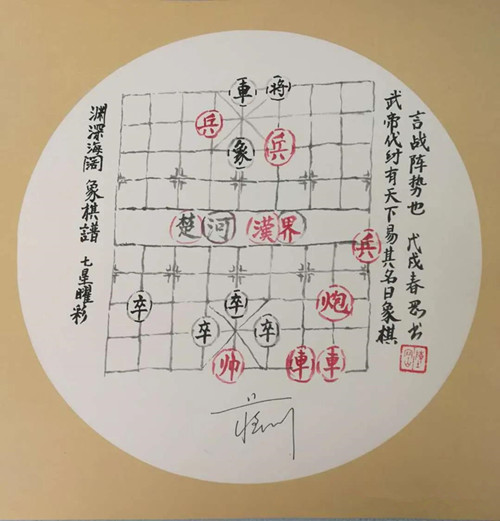 言战阵势也 戊戌春 书
武帝代纣有天下易其名曰象棋
車 将
兵
象 兵
楚河 漢界
兵
卒 卒 炮
卒 卒
帅 車 車
渊深海阔 象棋譜 七星曜彩